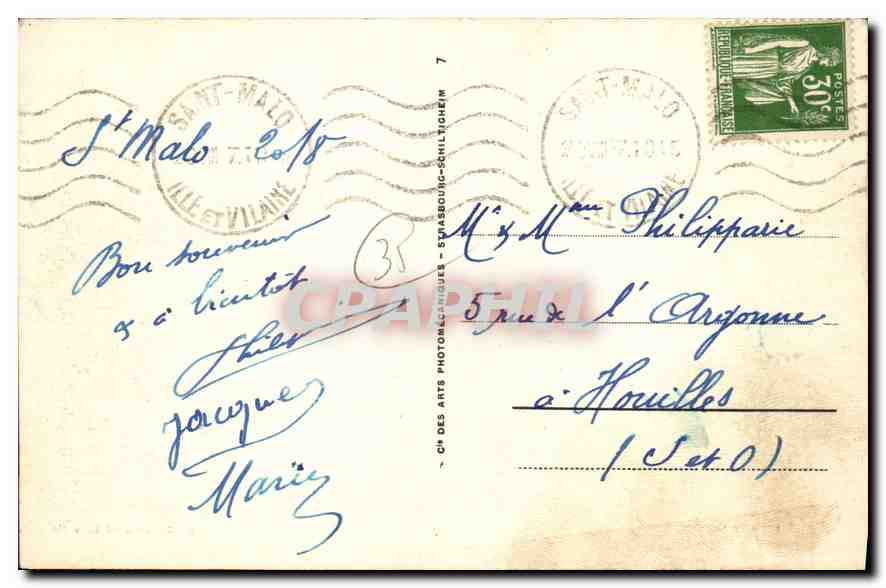 St Malo 20/8
Bon souvenir
& à bientôt
Jacques
Marie
35
SAINT-MALO
ILLE ET VILAINE
CIe DES ARTS PHOTOMÉCANIQUES - STRASBOURG-SCHILTIGHEIM 7
SAINT-MALO
ILLE ET VILAINE
REPUBLIQUE FRANÇAISE
POSTES
30c
Mr & Mme Philipparie
5 rue de l'Argonne
à Houilles
(S et O)
CPAPHIL